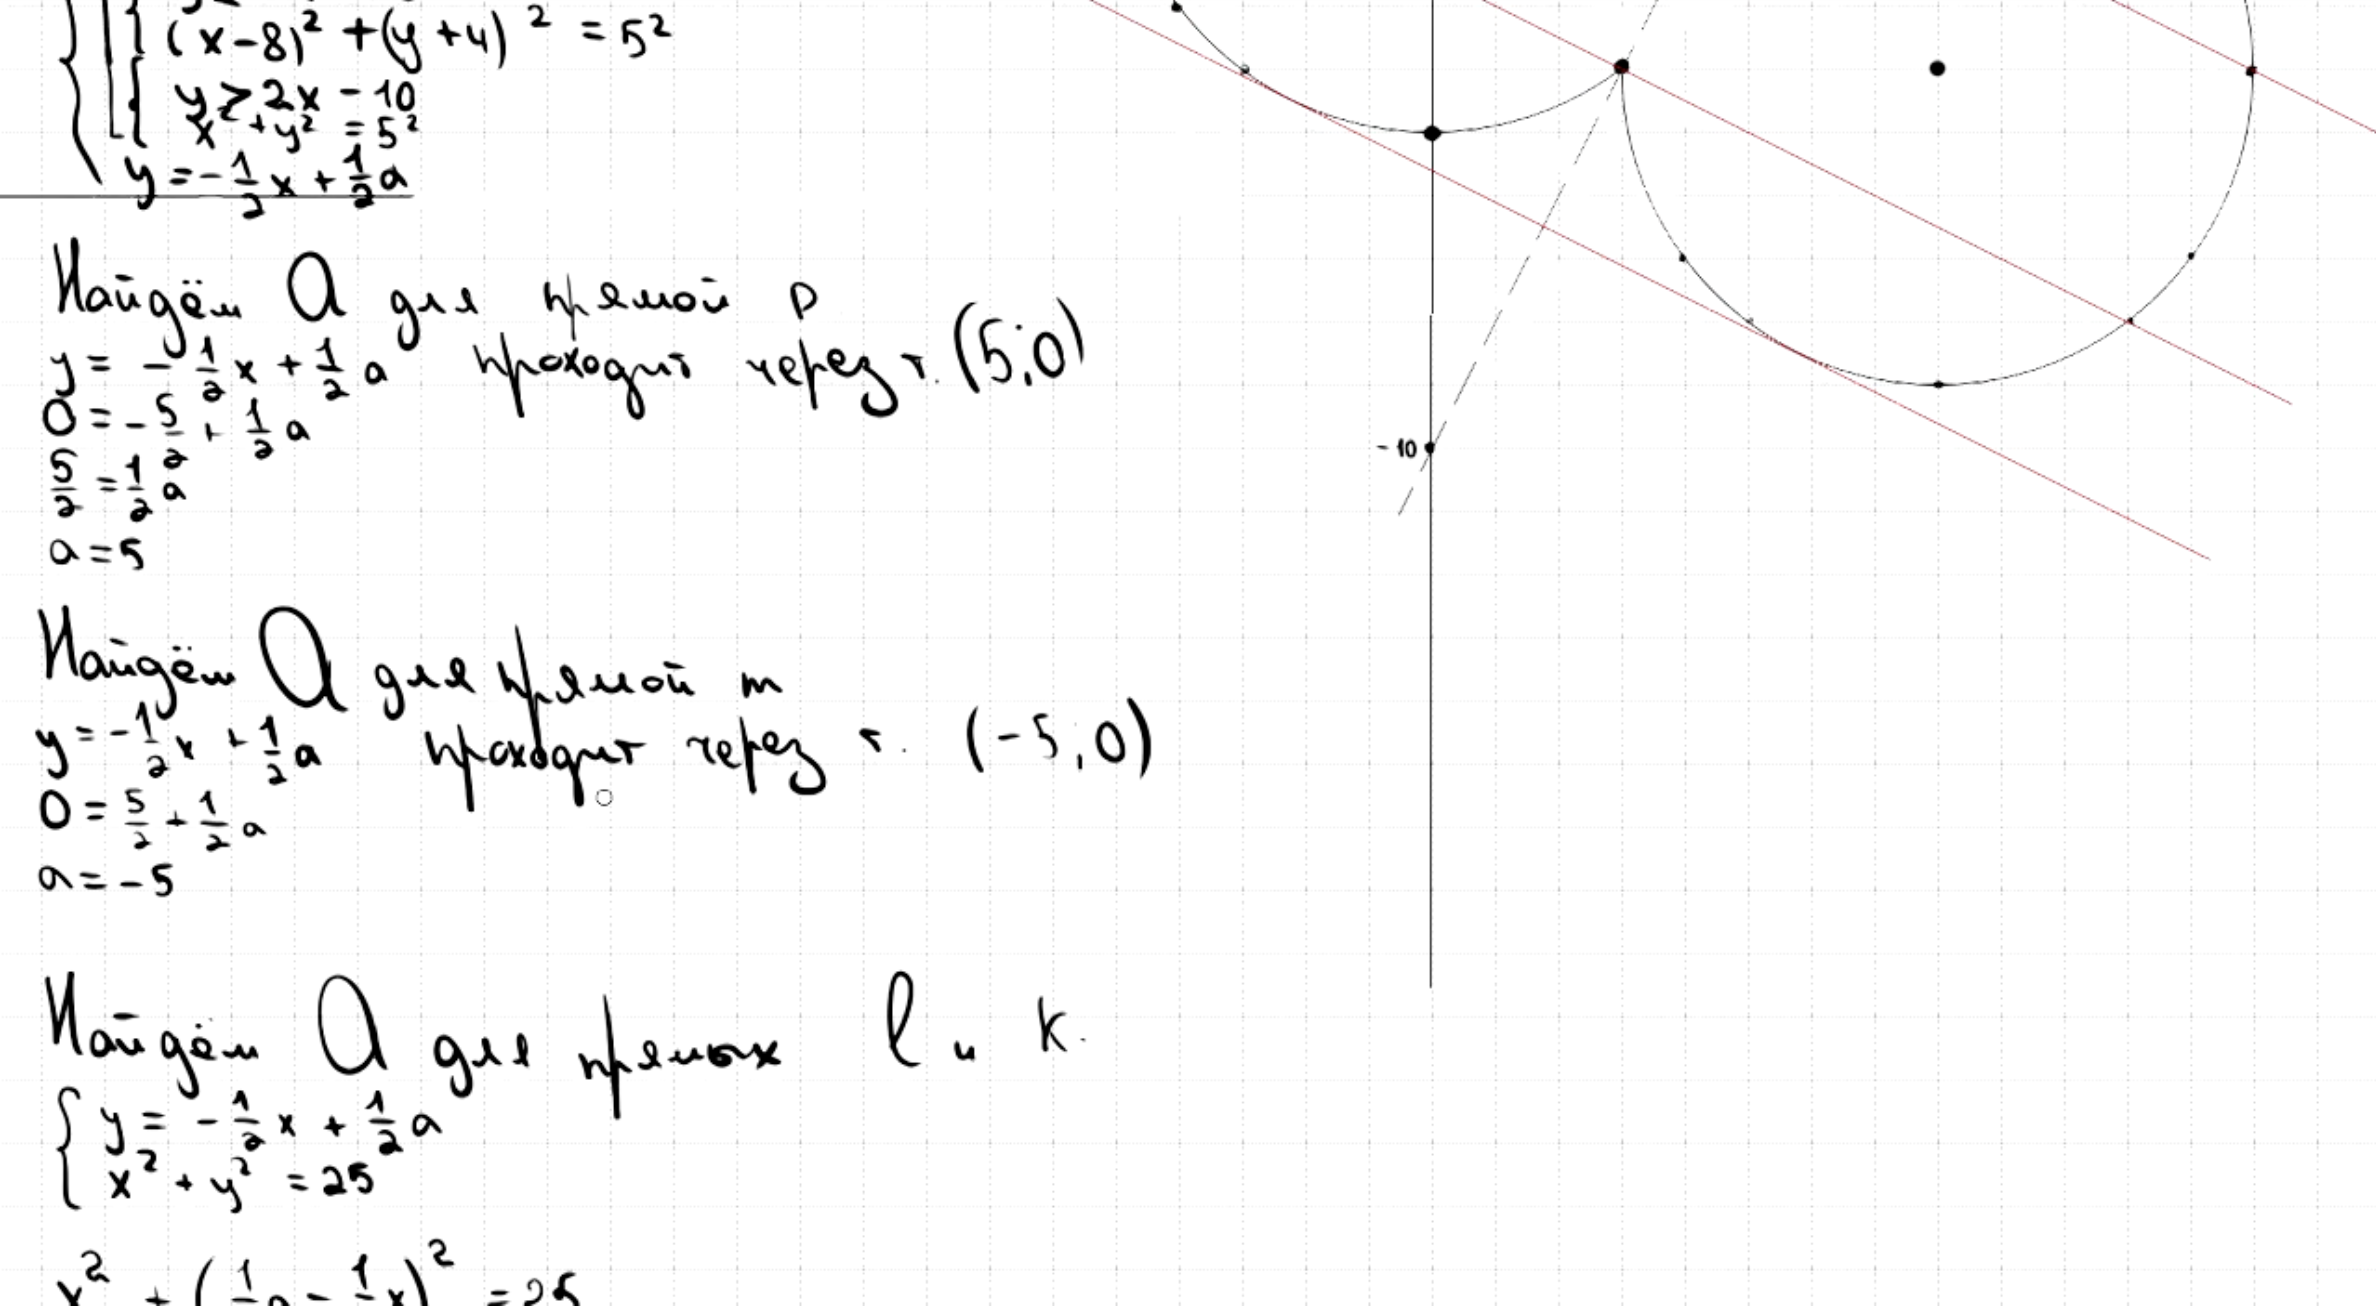 (x-8)² + (y+4)² = 5²
y ≥ 2x - 10
x² + y² = 5²
y = -1/2 x + 1/2 a
Найдём a для прямой p
y = -1/2 x + 1/2 a проходит через т. (5;0)
0 = -5/2 + 1/2 a
5/2 = 1/2 a
a = 5
-10
Найдём a для прямой m
y = -1/2 x + 1/2 a проходит через т. (-5;0)
0 = 5/2 + 1/2 a
a = -5
Найдём a для прямых l и k.
y = -1/2 x + 1/2 a
x² + y² = 25
x² + (1/2 a - 1/2 x)² = 25